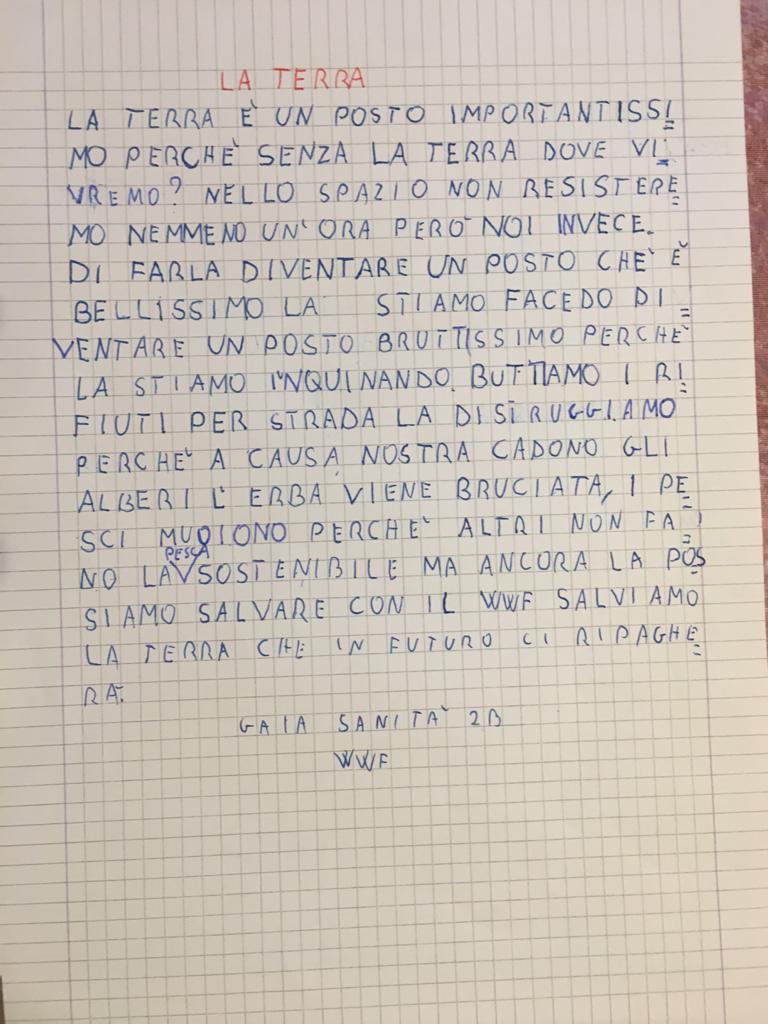 LA TERRA
LA TERRA È UN POSTO IMPORTANTISSI=
MO PERCHÈ SENZA LA TERRA DOVE VI=
VREMO? NELLO SPAZIO NON RESISTERE=
MO NEMMENO UN'ORA PERÒ NOI INVECE.
DI FARLA DIVENTARE UN POSTO CHÈ È
BELLISSIMO LA STIAMO FACEDO DI=
VENTARE UN POSTO BRUTTISSIMO PERCHÈ
LA STIAMO INQUINANDO, BUTTIAMO I RI=
FIUTI PER STRADA LA DISTRUGGIAMO
PERCHÈ A CAUSA NOSTRA CADONO GLI
ALBERI L'ERBA VIENE BRUCIATA, I PE=
SCI MUOIONO PERCHÈ ALTRI NON FA=
NO LA PESCA SOSTENIBILE MA ANCORA LA POS=
SIAMO SALVARE CON IL WWF SALVIAMO
LA TERRA CHE IN FUTURO CI RIPAGHE=
RÀ.
GAIA SANITÀ 2B
WWF